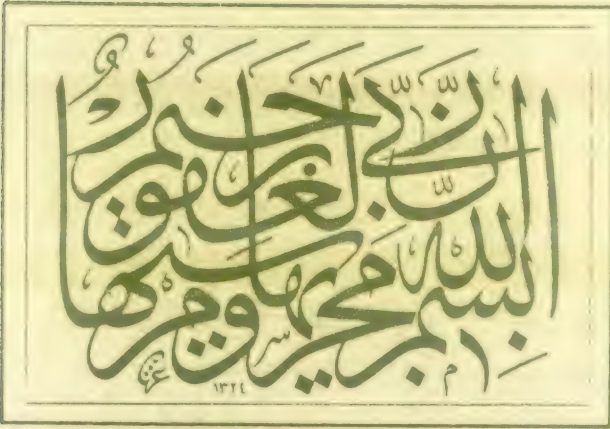 بسم الله مجريها ومرسيها
ان ربي لغفور رحيم
١٣٢٤